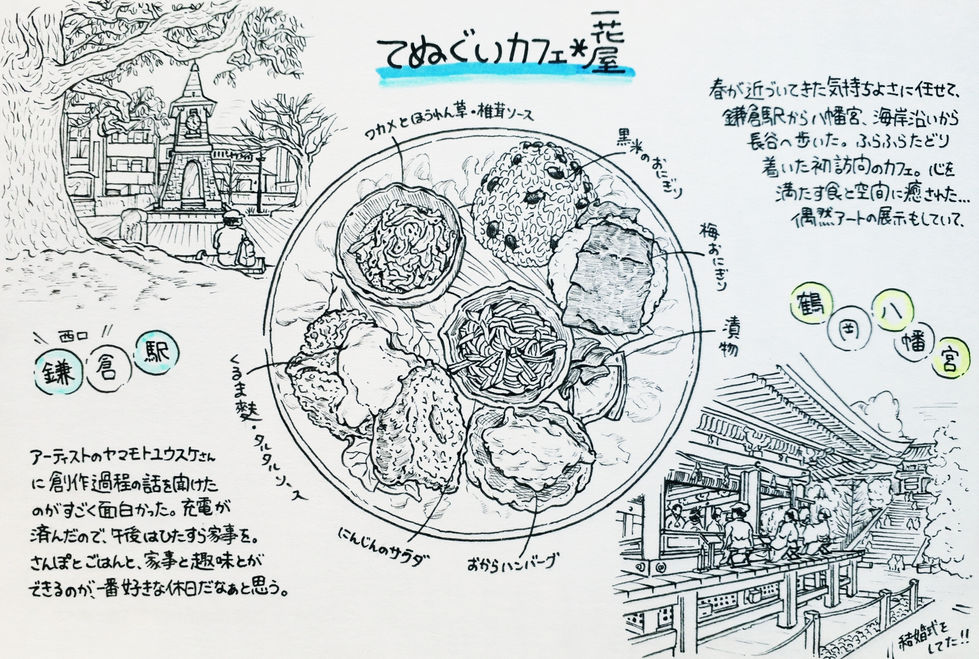 てぬぐいカフェ*一花屋
春が近づいてきた気持ちよさに任せて、
鎌倉駅から八幡宮、海岸沿いから
長谷へ歩いた。ふらふらたどり
着いた初訪問のカフェ。心を
満たす食と空間に癒された…
偶然アートの展示もしていて、
ワカメとほうれん草・椎茸ソース
黒米のおにぎり
梅おにぎり
漬物
くるま麩・タルタルソース
にんじんのサラダ
おからハンバーグ
西口
鎌倉駅
鶴岡八幡宮
アーティストのヤマモトユウスケさん
に創作過程の話を聞けた
のがすごく面白かった。充電が
済んだので、午後はひたすら家事を。
さんぽとごはんと、家事と趣味とが
できるのが、一番好きな休日だなぁと思う。
結婚式を
してた!!